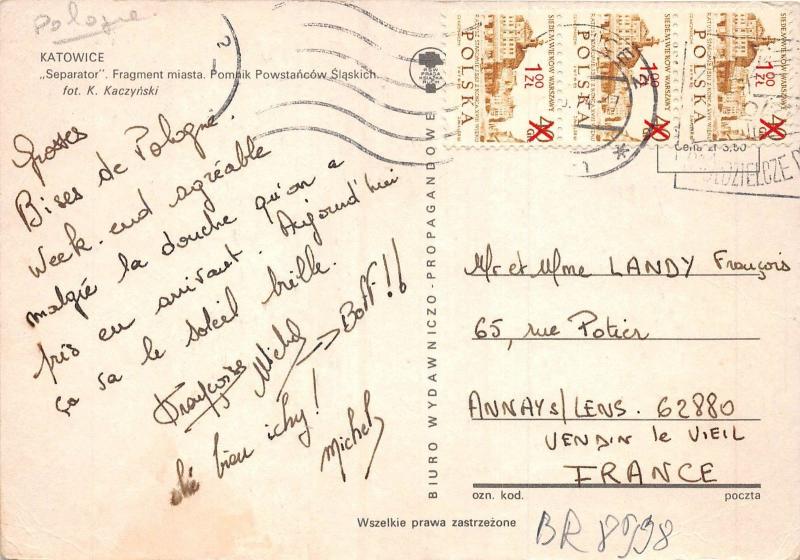 Pologne
KATOWICE
„Separator". Fragment miasta. Pomnik Powstańców Śląskich
fot. K. Kaczyński
Grosses
Bises de Pologne.
Week-end agréable
malgré la douche qu'on a
pris en arrivant. Aujourd'hui
ça va le soleil brille.
Françoise Michel → Bof!!
bien ichy!
Michel
BIURO WYDAWNICZO-PROPAGANDOWE
1.00 ZŁ
40 GR
POLSKA
SIEDEM WIEKÓW WARSZAWY
1.00 ZŁ
40 GR
POLSKA
SIEDEM WIEKÓW WARSZAWY
1.00 ZŁ
40
POLSKA
SIEDEM WIEKÓW WARSZAWY
Cena zł 3,50
Mr et Mme LANDY François
65, rue Potier
ANNAYS/LENS. 62880
VENDIN le VIEIL
FRANCE
ozn. kod.
poczta
Wszelkie prawa zastrzeżone
BR 8998